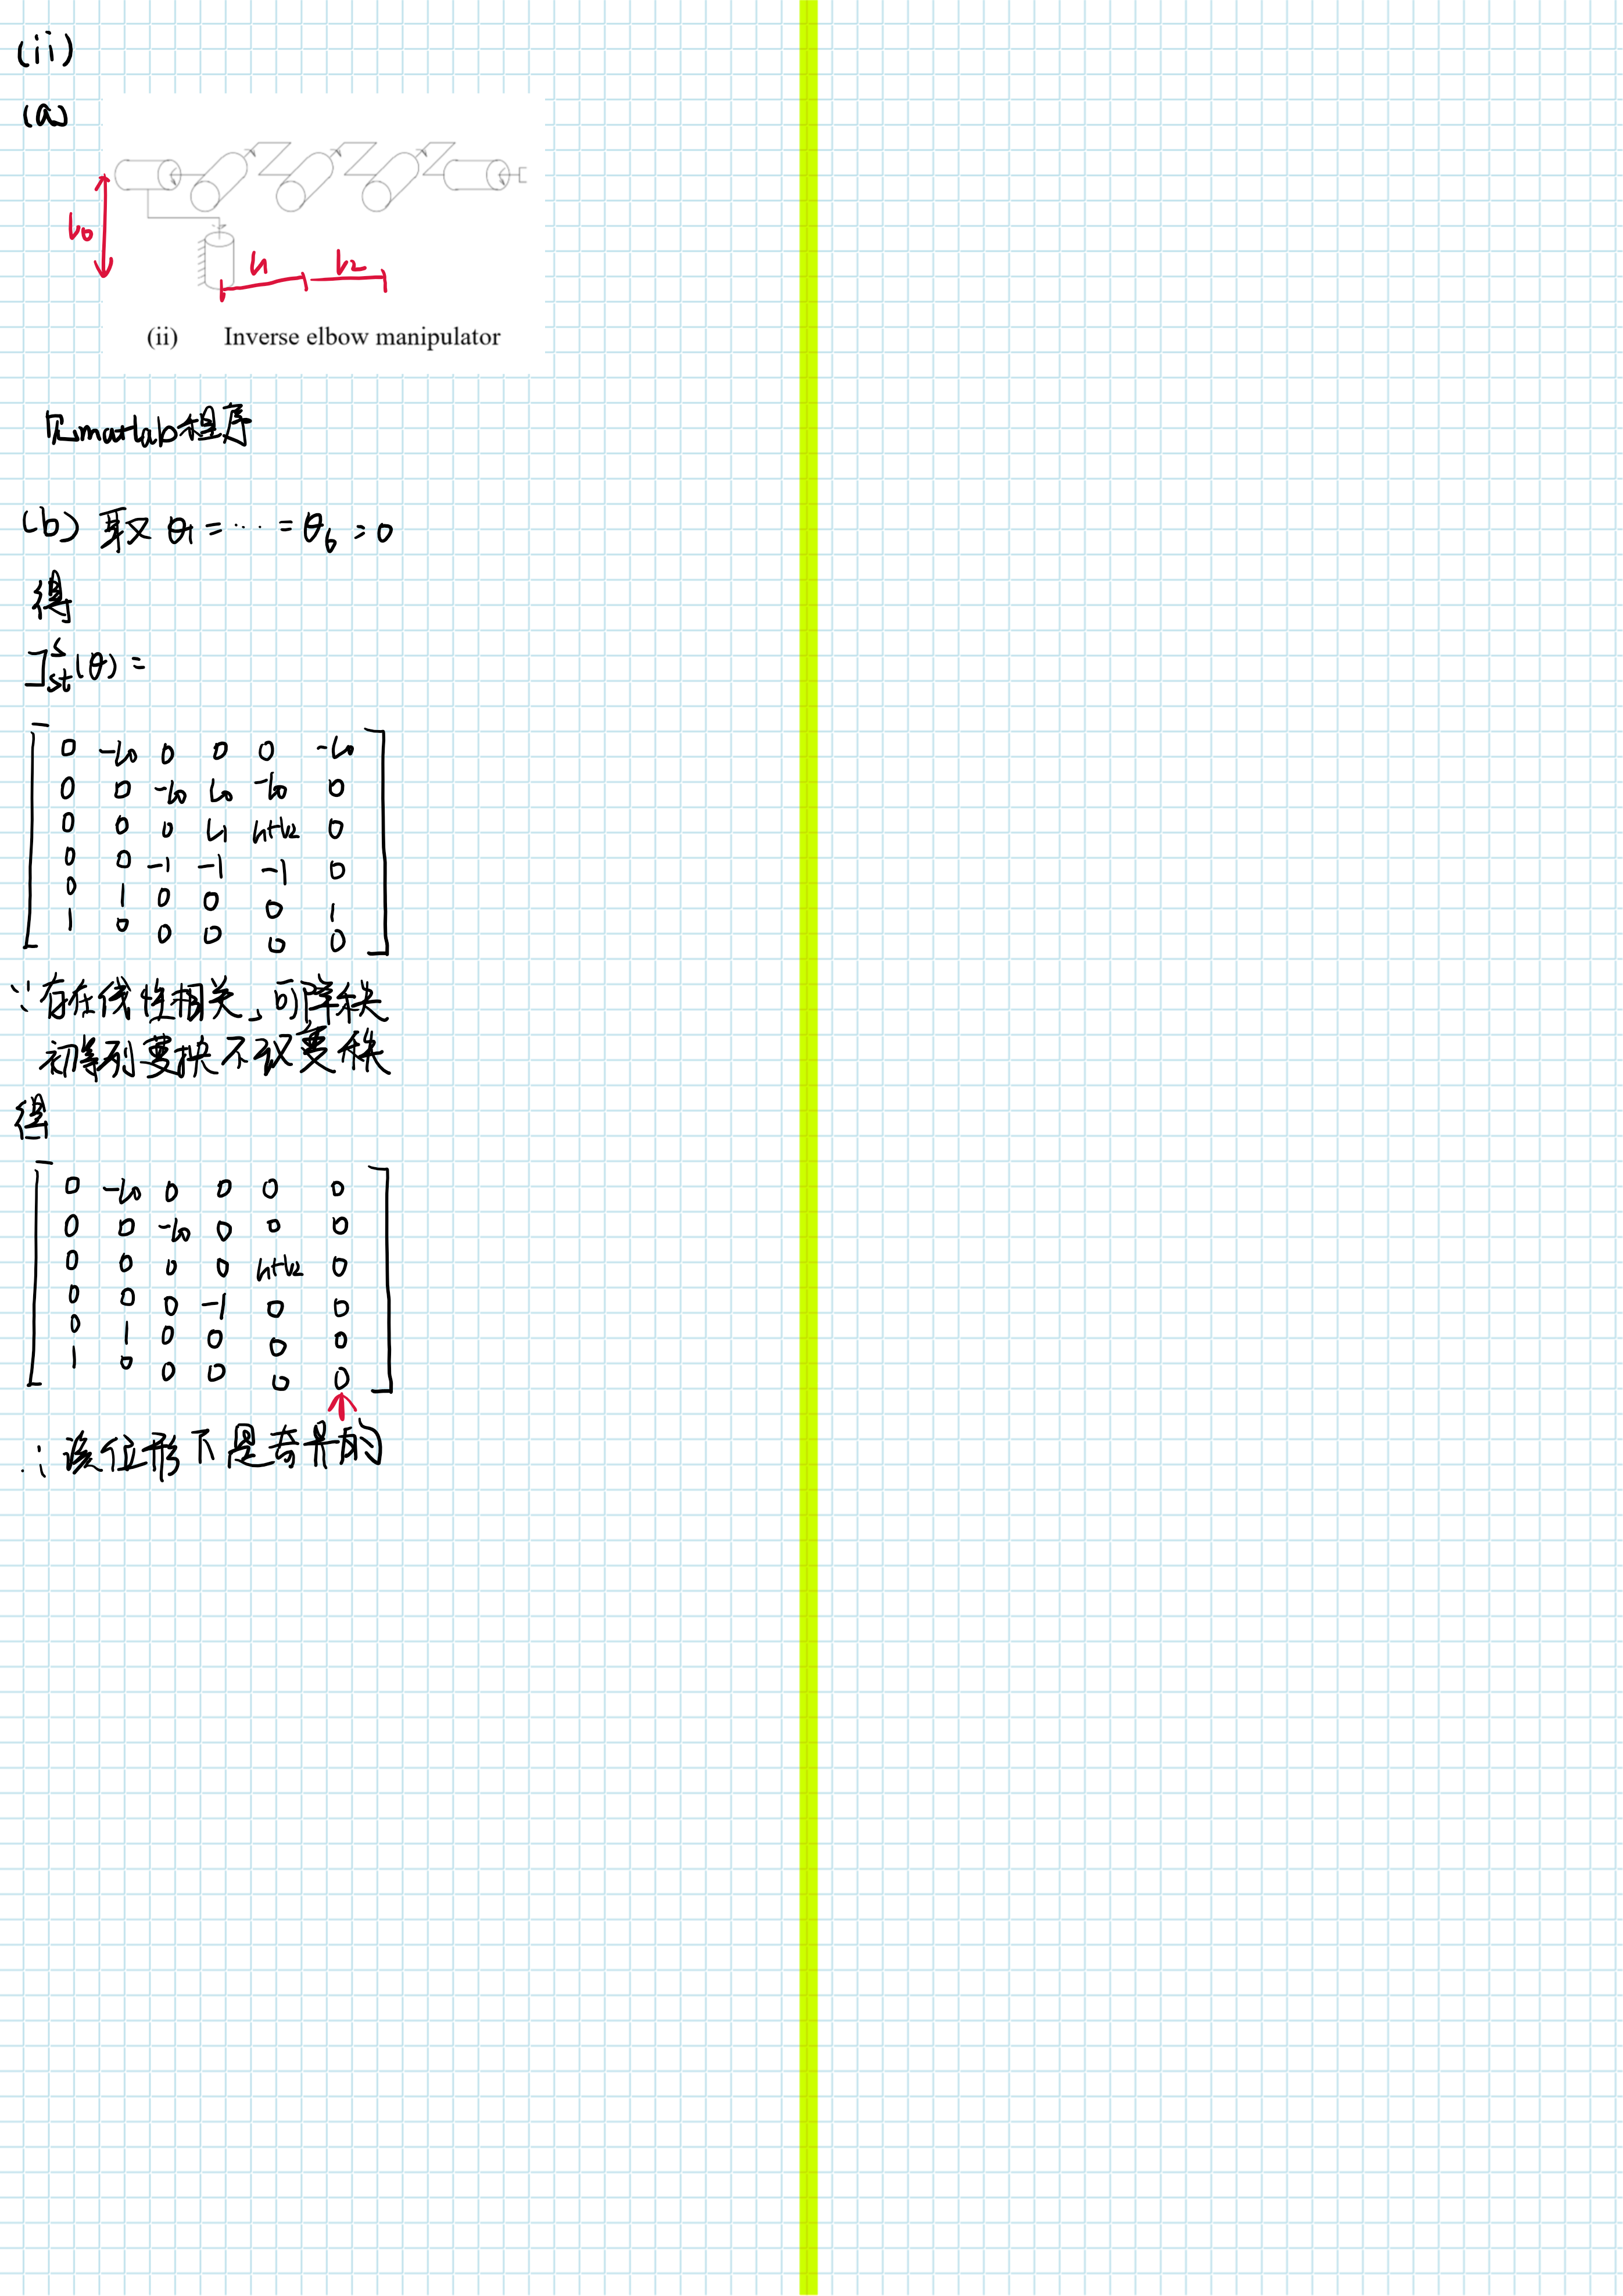 (ii)
(a)
l₀
l₁ l₂
(ii) Inverse elbow manipulator
见matlab程序
(b) 取 θ₁ = ⋯ = θ₆ = 0
得
Jˢₛₜ(θ) =
0 -l₀ 0 0 0 -l₀
0 0 -l₀ l₀ -l₀ 0
0 0 0 l₁ l₁+l₂ 0
0 0 -1 -1 -1 0
0 1 0 0 0 1
1 0 0 0 0 0
∵存在线性相关,可降秩
初等列变换不改变秩
得
0 -l₀ 0 0 0 0
0 0 -l₀ 0 0 0
0 0 0 0 l₁+l₂ 0
0 0 0 -1 0 0
0 1 0 0 0 0
1 0 0 0 0 0
∴该位形下是奇异的